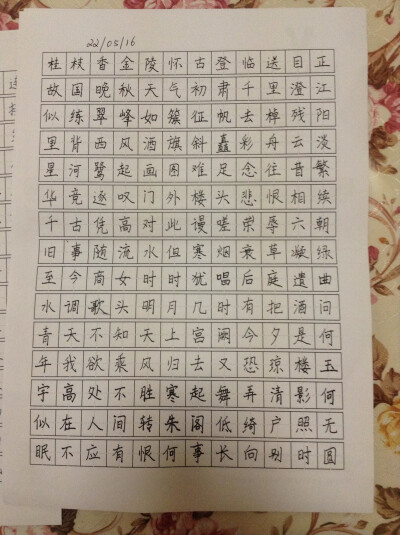 22/05/16
桂枝香金陵怀古登临送目正
故国晚秋天气初肃千里澄江
似练翠峰如簇征帆去棹残阳
里背西风酒旗斜矗彩舟云淡
星河鹭起画图难足念往昔繁
华竞逐叹门外楼头悲恨相续
千古凭高对此谩嗟荣辱六朝
旧事随流水但寒烟衰草凝绿
至今商女时时犹唱后庭遗曲
水调歌头明月几时有把酒问
青天不知天上宫阙今夕是何
年我欲乘风归去又恐琼楼玉
宇高处不胜寒起舞弄清影何
似在人间转朱阁低绮户照无
眠不应有恨何事长向别时圆